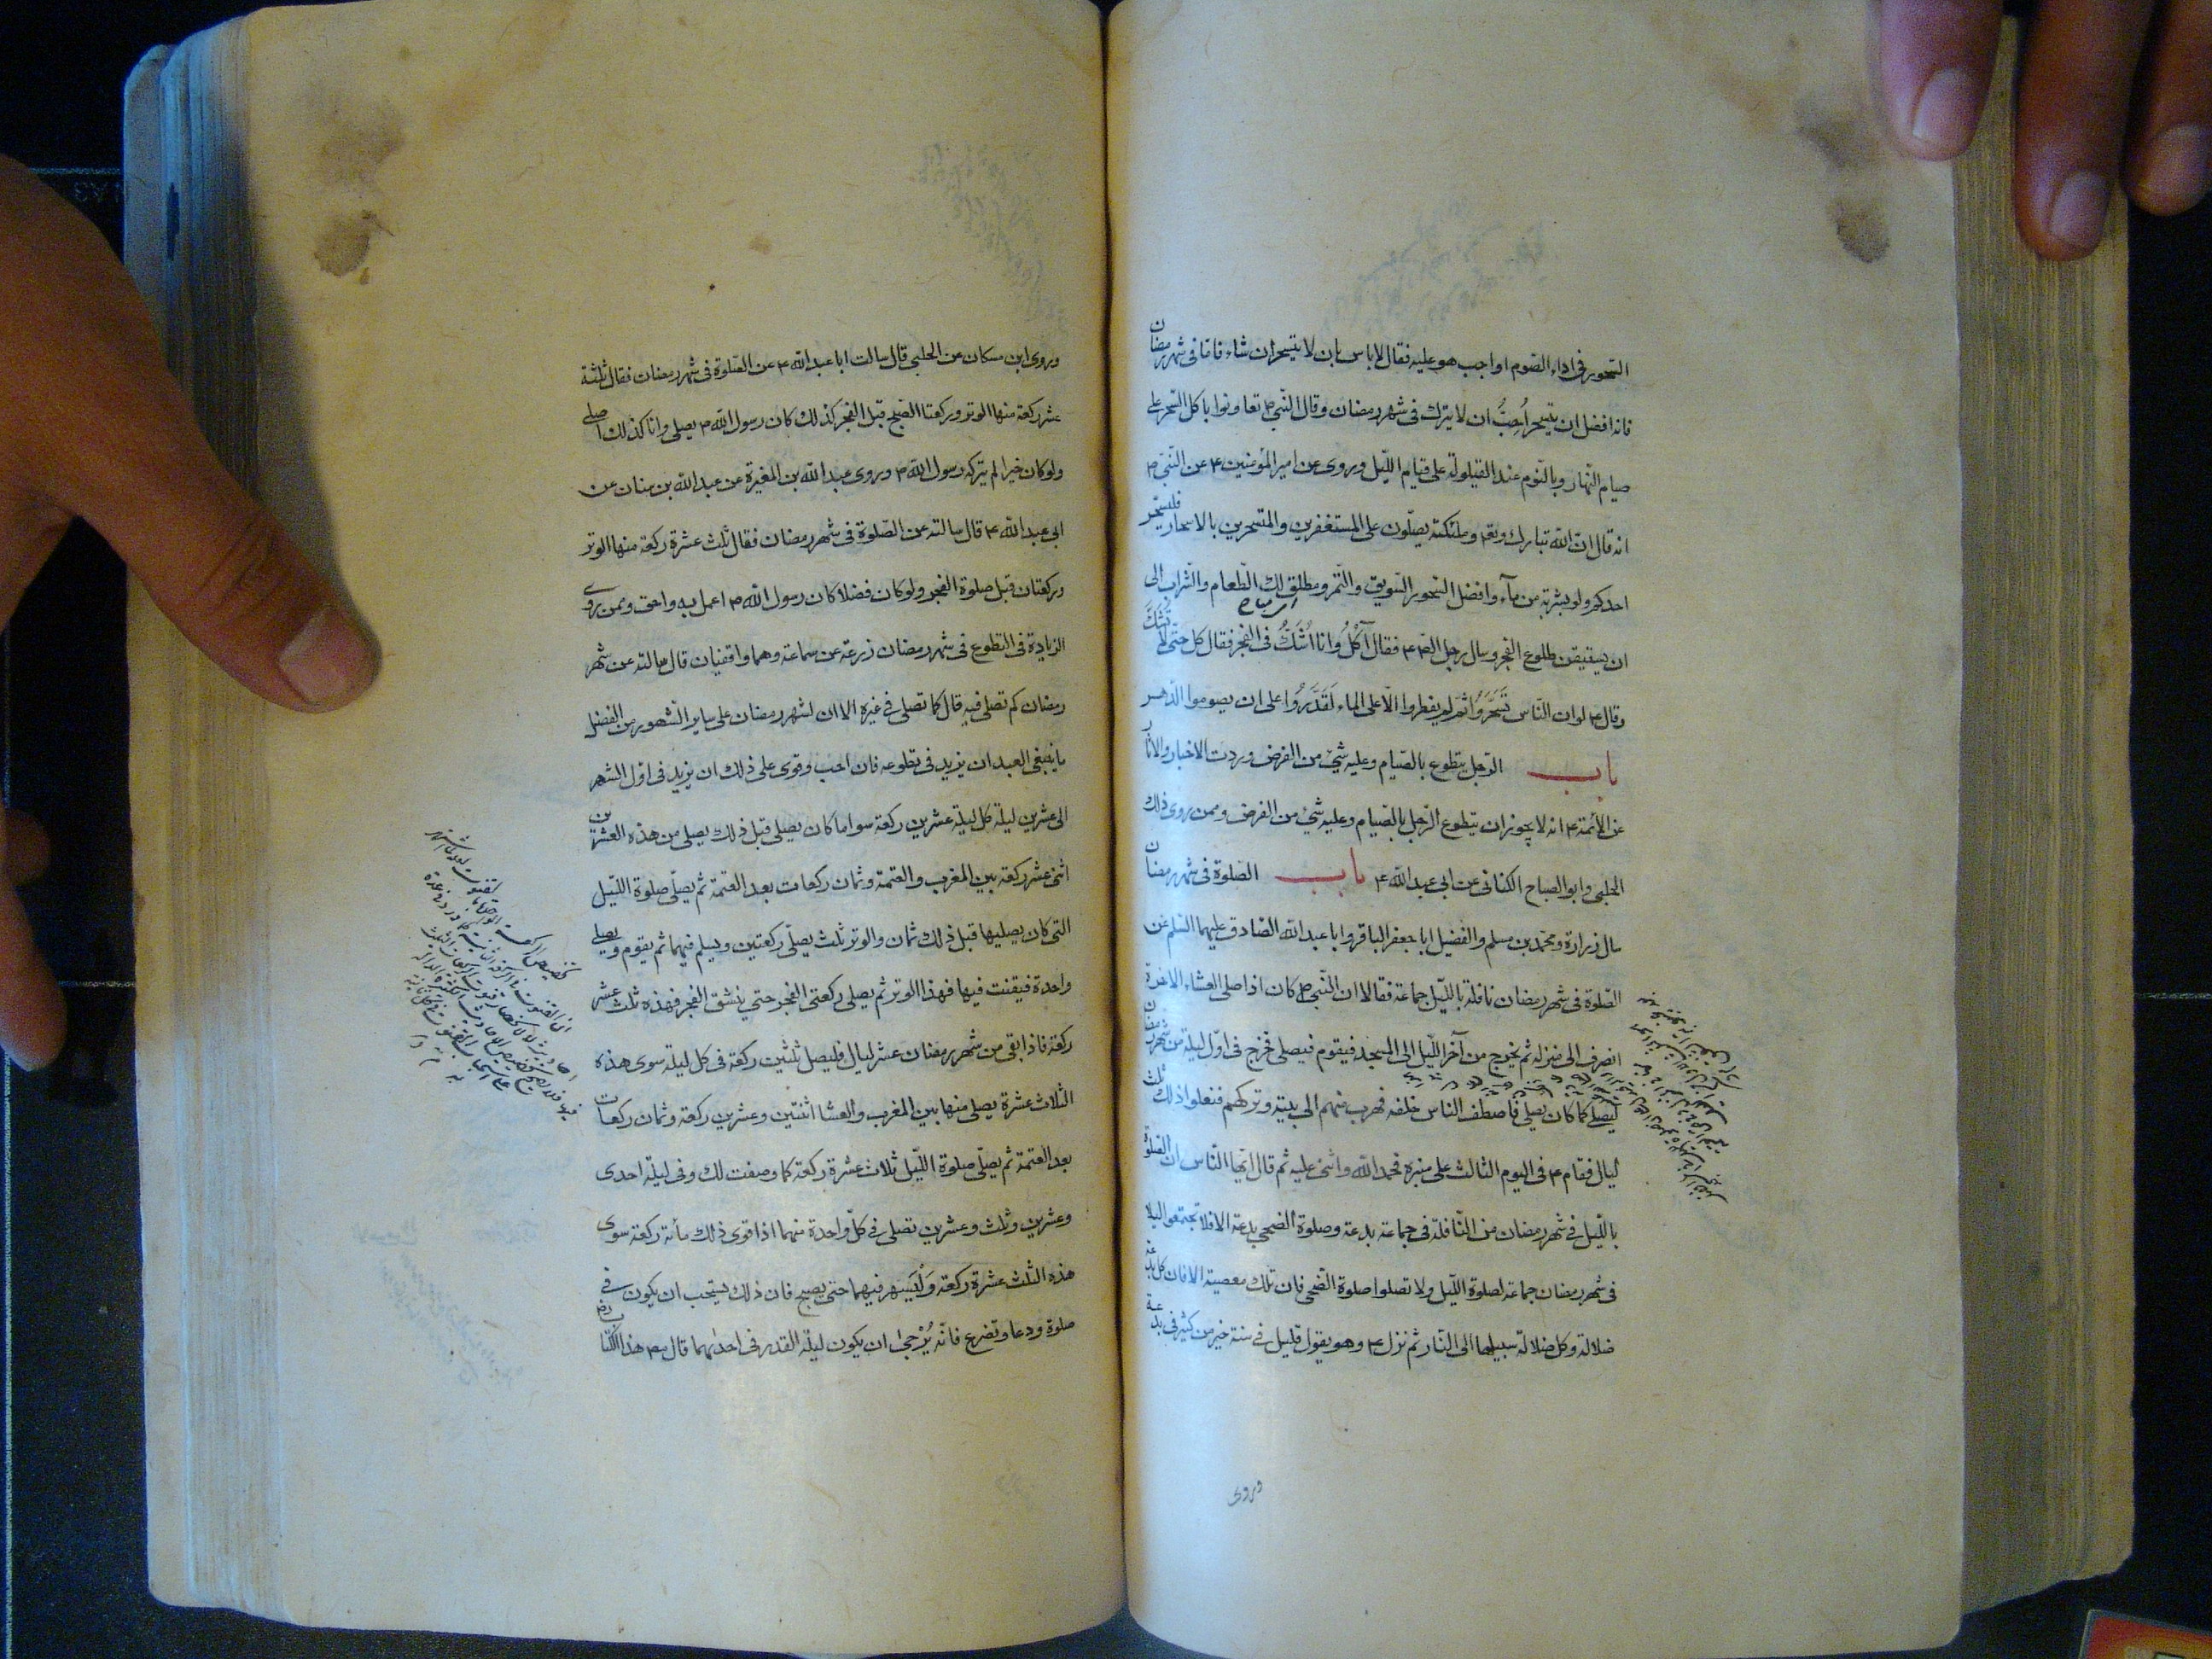 السحور فى اداء الصّوم اواجب هو عليه فقال لا باس بان لا يتسحر ان شاء فامّا فى شهر رمضان
فانه افضل ان يتسحر اُحِبُّ ان لا يترك فى شهر رمضان وقال النّبى ص تعاونوا باكل السّحر على
صيام النّهار وبالنّوم عند القيلولة على قيام اللّيل وروى عن امير المؤمنين ع عن النّبى ص
انه قال انّ الله تبارك وتع وملئكته يصلّون على المستغفرين والمتسحرين بالاسحار فليتسحّر
احدكم ولو بشربة من مآء وافضل السّحور السّويق والتّمر ومطلق لك الطّعام والشّراب الى
ان يستيقن طلوع الفجر وسال رجل الص ع فقال آكُلُ وانا اشُكُّ فى الفجر فقال كل حتّى لا تُشكَّ
وقال ع لو ان النّاس تَسَحَّرُوا ثم لم يفطروا الّا على الماء لَقَدَّرُوا على ان يصوموا الدّهر
باب الرّجل يتطوع بالصّيام وعليه شئ من الفرض وردت الاخبار والاثار
عن الأئمة ع انه لا يجوز ان يتطوع الرّجل بالصّيام وعليه شئ من الفرض وممن روى ذلك
الحلبى وابو الصباح الكنانى عن ابى عبد الله ع باب الصّلوة فى شهر رمضان
سال زرارة ومحمّد بن مسلم والفضيل ابا جعفر الباقر وابا عبد الله الصّادق عليهما السّلم عن
الصّلوة فى شهر رمضان نافلة باللّيل جماعة فقالا ان النّبى ص كان اذا صلى العشاء الاخرة
انصرف الى منزله ثم يخرج من آخر اللّيل الى المسجد فيقوم فيصلى فخرج فى اوّل ليلة من شهر رمضان
ليصلى كما كان يصلى فاصطف الناس خلفه فهرب منهم الى بيته وتركهم ففعلوا ذلك ثلث
ليال فقام ع فى اليوم الثالث على منبره فحمد الله واثنى عليه ثم قال ايّها النّاس ان الصّلوة
باللّيل فى شهر رمضان من النّافلة فى جماعة بدعة وصلوة الضحى بدعة الا فلا تجتمعوا ليلا
فى شهر رمضان جماعة لصلوة اللّيل ولا تصلوا صلوة الضّحى فان تلك معصية الا فان كل بدعة
ضلالة وكل ضلالة سبيلها الى النّار ثم نزل ع وهو يقول قليل فى سنة خير من كثير فى بدعة
وروى
وروى ابن مسكان عن الحلبى قال سالت ابا عبد الله ع عن الصّلوة فى شهر رمضان فقال ثلثة
عشر ركعة منها الوتر وركعتا الصّبح قبل الفجر كذلك كان رسول الله ص يصلى وانا كذلك اصلى
ولو كان خيرا لم يتركه رسول الله ص وروى عبد الله بن المغيرة عن عبد الله بن سنان عن
ابى عبد الله ع قال سالته عن الصّلوة فى شهر رمضان فقال ثلث عشرة ركعة منها الوتر
وركعتان قبل صلوة الفجر ولو كان فضلا كان رسول الله ص اعمل به واحق وممن روى
الزيادة فى التطوع فى شهر رمضان زرعة عن سماعة وهما واقفيان قال سالته عن شهر
رمضان كم تصلى فيه قال كما تصلى فى غيره الا ان لشهر رمضان على ساير الشّهور من الفضل
ما ينبغى العبد ان يزيد فى تطوعه فان احب وقوى على ذلك ان يزيد فى اوّل الشهر
الى عشرين ليلة كل ليلة عشرين ركعة سوا ما كان يصلى قبل ذلك يصلى من هذه العشرين
اثنى عشر ركعة بين المغرب والعتمة وثمان ركعات بعد العتمة ثم يصلّى صلوة اللّيل
التى كان يصليها قبل ذلك ثمان والوتر ثلث يصلّى ركعتين ويسلم فيهما ثم يقوم ويصلى
واحدة فيقنت فيها فهذا الوتر ثم يصلى ركعتى الفجر حتى ينشق الفجر فهذه ثلث عشر
ركعة فاذا بقى من شهر رمضان عشر ليال فليصل ثلثين ركعة فى كل ليلة سوى هذه
الثلاث عشرة يصلى منها بين المغرب والعشا اثنتين وعشرين ركعة وثمان ركعات
بعد العتمة ثم يصلّى صلوة اللّيل ثلاث عشرة ركعة كما وصفت لك وفى ليلة احدى
وعشرين وثلث وعشرين تصلى فى كلّ واحدة منهما اذا قوى ذلك مأتة ركعة سوى
هذه الثلث عشرة ركعة وَلْيَسْهر فيهما حتى يصبح فان ذلك يستحب ان يكون فى
صلوة ودعا وتضرع فانّه يُرْجى ان يكون ليلة القدر فى احدٰيهما قال مص هذا الكتا